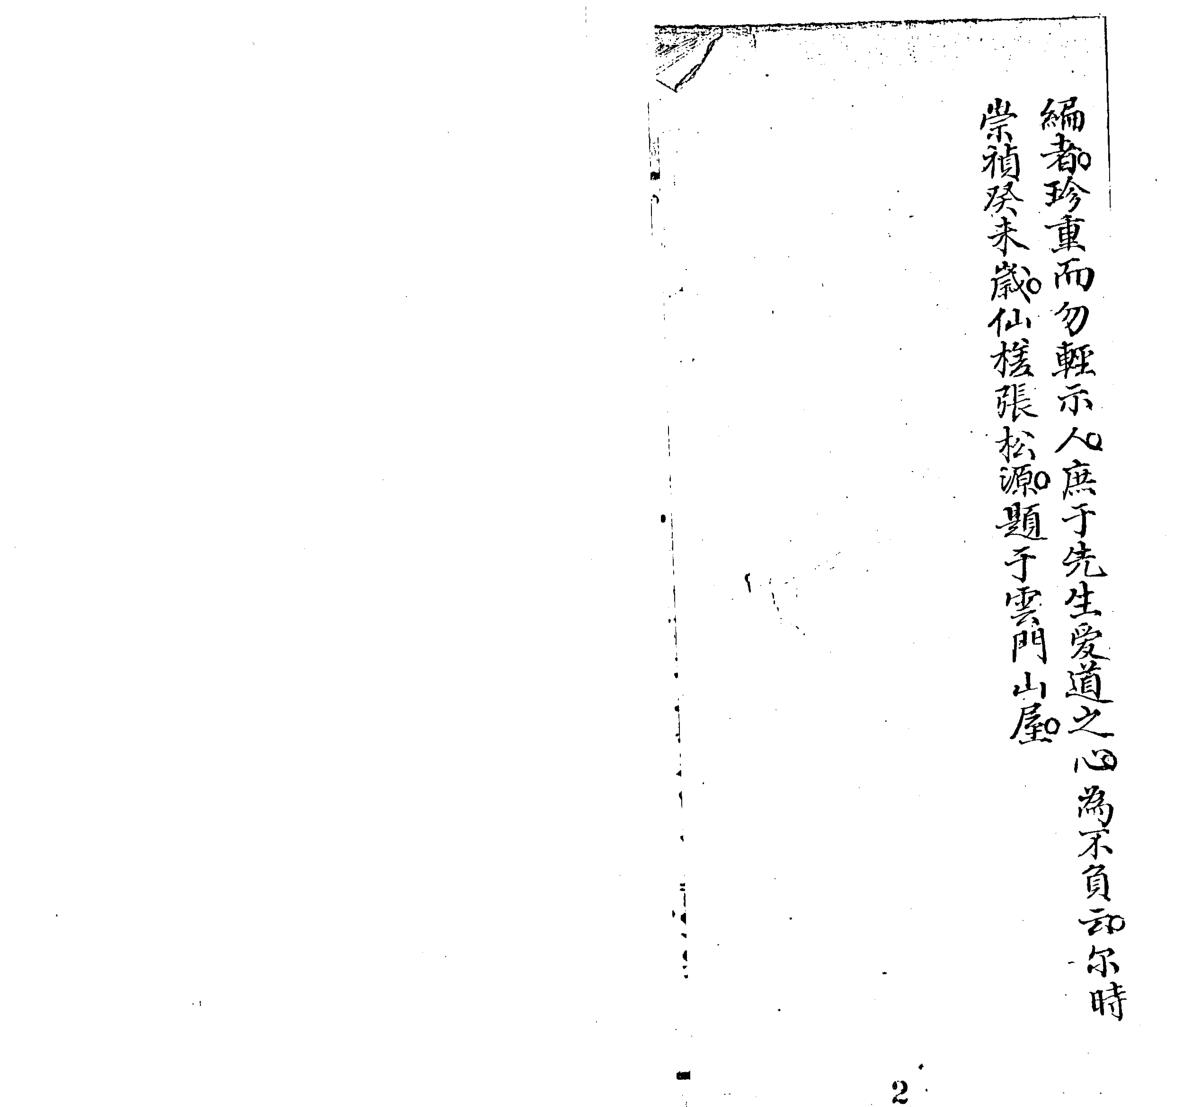 編者。珍重而勿輕示人。庶于先生爱道之心。為不負云。尔時
崇禎癸未歲。仙槎張松源。題于雲門山屋。
2